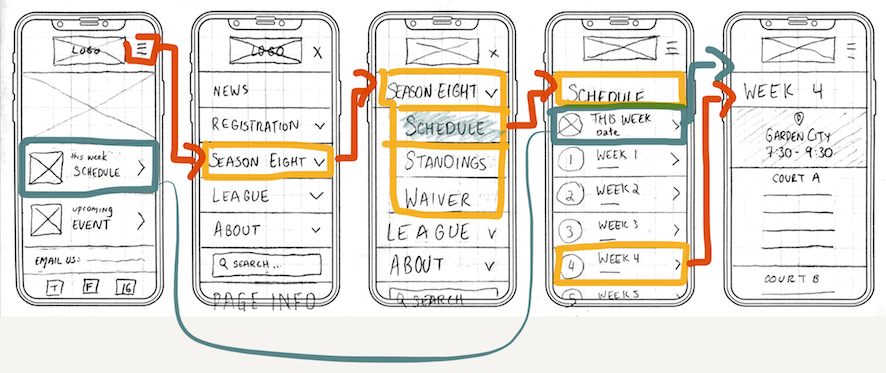 LOGO
this week
SCHEDULE
upcoming
EVENT
EMAIL US:
T F IG
LOGO X
NEWS
REGISTRATION
SEASON EIGHT
LEAGUE
ABOUT
SEARCH...
PAGE INFO
X
SEASON EIGHT
SCHEDULE
STANDINGS
WAIVER
LEAGUE
ABOUT
SEARCH
SCHEDULE
THIS WEEK
Date
1 WEEK 1
2 WEEK 2
3 WEEK 3
4 WEEK 4
5 WEEK 5
WEEK 4
GARDEN CITY
7:30 - 9:30
COURT A
COURT B